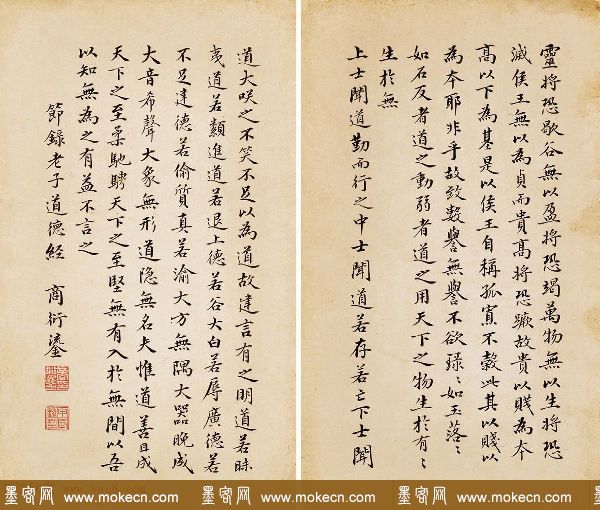 靈將恐歇谷無以盈將恐竭萬物無以生將恐
滅侯王無以為貞而貴高將恐蹶故貴以賤為本
高以下為基是以侯王自稱孤寡不穀此其以賤以
為本耶非乎故致數譽無譽不欲琭〻如玉落〻
如石反者道之動弱者道之用天下之物生於有〻
生於無
上士聞道勤而行之中士聞道若存若亡下士聞
道大咲之不笑不足以為道故建言有之明道若昧
夷道若類進道若退上德若谷大白若辱廣德若
不足建德若偷質真若渝大方無隅大器晚成
大音希聲大象無形道隱無名夫惟道善且成
天下之至柔馳騁天下之至堅無有入於無間以吾
以知無為之有益不言之
節錄老子道德經 商衍鎏
墨客网 www.mokecn.com 墨客网 www.mokecn.com 墨客网 www.mokecn.com